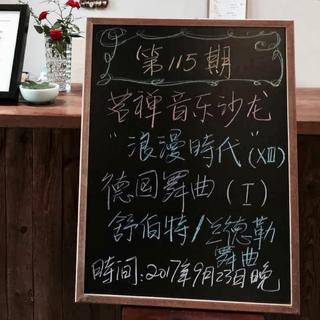 第115期
茗禅音乐沙龙
"浪漫時代"(XIII)
德国舞曲(I)
舒伯特/兰德勒
舞曲
時间:2017年9月23日晚